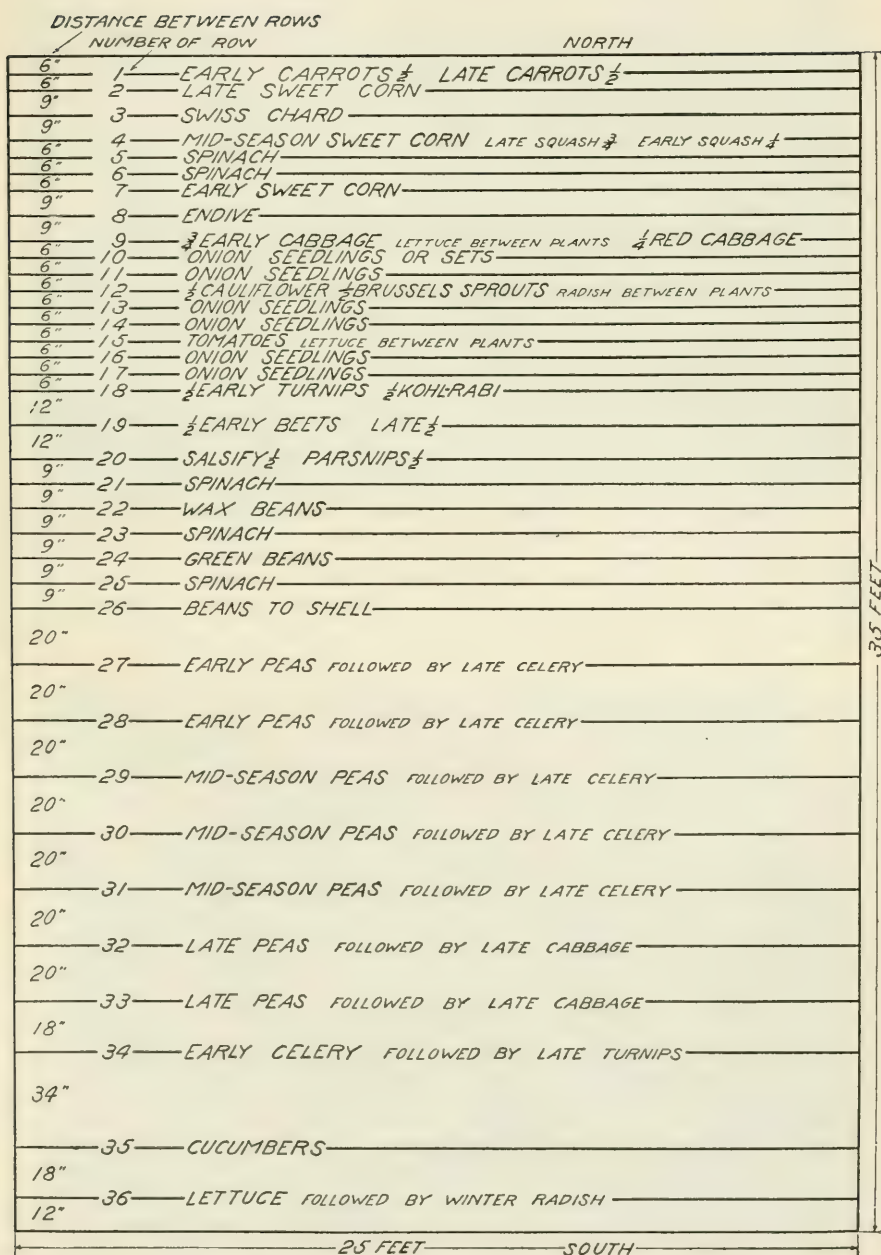 DISTANCE BETWEEN ROWS
NUMBER OF ROW NORTH
6"
6" 1 EARLY CARROTS ½ LATE CARROTS ½
9" 2 LATE SWEET CORN
9" 3 SWISS CHARD
6" 4 MID-SEASON SWEET CORN LATE SQUASH ¾ EARLY SQUASH ¼
6" 5 SPINACH
6" 6 SPINACH
9" 7 EARLY SWEET CORN
9" 8 ENDIVE
6" 9 ¾ EARLY CABBAGE LETTUCE BETWEEN PLANTS ¼ RED CABBAGE
6" 10 ONION SEEDLINGS OR SETS
6" 11 ONION SEEDLINGS
6" 12 ½ CAULIFLOWER ½ BRUSSELS SPROUTS RADISH BETWEEN PLANTS
6" 13 ONION SEEDLINGS
6" 14 ONION SEEDLINGS
6" 15 TOMATOES LETTUCE BETWEEN PLANTS
6" 16 ONION SEEDLINGS
6" 17 ONION SEEDLINGS
12" 18 ½ EARLY TURNIPS ½ KOHL-RABI
12" 19 ½ EARLY BEETS LATE ½
9" 20 SALSIFY ½ PARSNIPS ½
9" 21 SPINACH
9" 22 WAX BEANS
9" 23 SPINACH
9" 24 GREEN BEANS
9" 25 SPINACH
26 BEANS TO SHELL
20"
27 EARLY PEAS FOLLOWED BY LATE CELERY
20"
28 EARLY PEAS FOLLOWED BY LATE CELERY
20"
29 MID-SEASON PEAS FOLLOWED BY LATE CELERY
20"
30 MID-SEASON PEAS FOLLOWED BY LATE CELERY
20"
31 MID-SEASON PEAS FOLLOWED BY LATE CELERY
20"
32 LATE PEAS FOLLOWED BY LATE CABBAGE
20"
33 LATE PEAS FOLLOWED BY LATE CABBAGE
18"
34 EARLY CELERY FOLLOWED BY LATE TURNIPS
34"
35 CUCUMBERS
18"
36 LETTUCE FOLLOWED BY WINTER RADISH
12"
35 FEET
25 FEET SOUTH